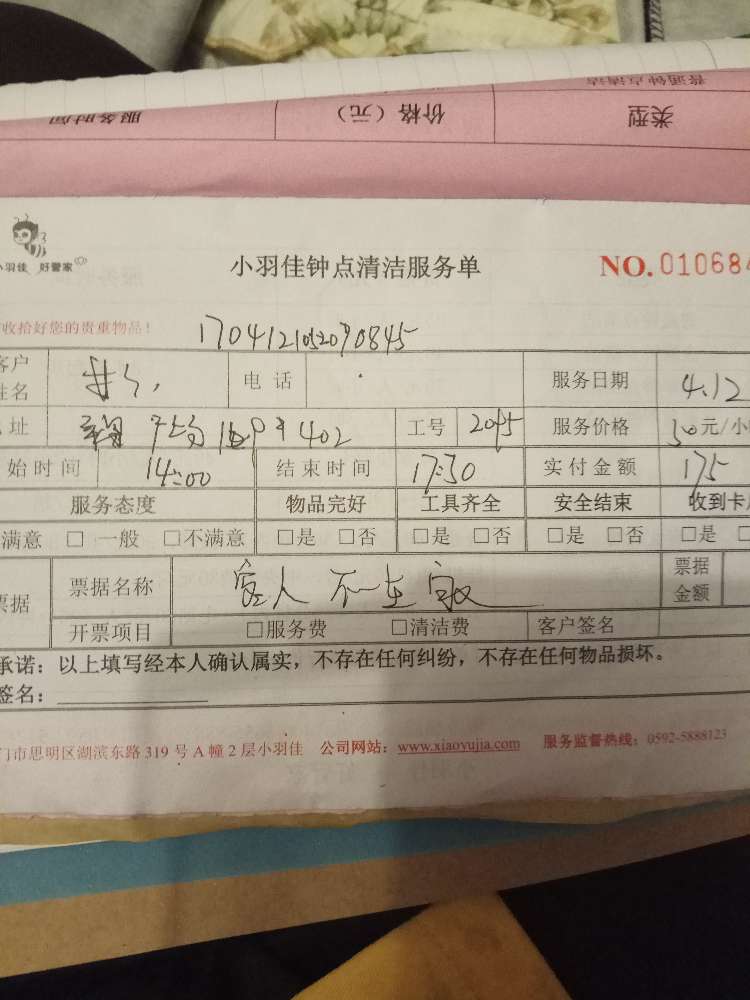 普通钟点清洁
类型 价格（元） 服务时间
小羽佳 好管家
小羽佳钟点清洁服务单 NO.010684
收拾好您的贵重物品！
1704121052090845
客户姓名 电话 服务日期 4.12
址 402 工号 2095 服务价格 50元/小
始时间 14:00 结束时间 17:30 实付金额 175
服务态度 物品完好 工具齐全 安全结束 收到卡
满意 □ 一般 □不满意 □是 □否 □是 □否 □是 □否 □是
票据 票据名称 客人不在家 票据金额
开票项目 □服务费 □清洁费 客户签名
承诺：以上填写经本人确认属实，不存在任何纠纷，不存在任何物品损坏。
签名：
门市思明区湖滨东路 319 号 A 幢 2 层小羽佳 公司网站：www.xiaoyujia.com 服务监督热线：0592-5888123